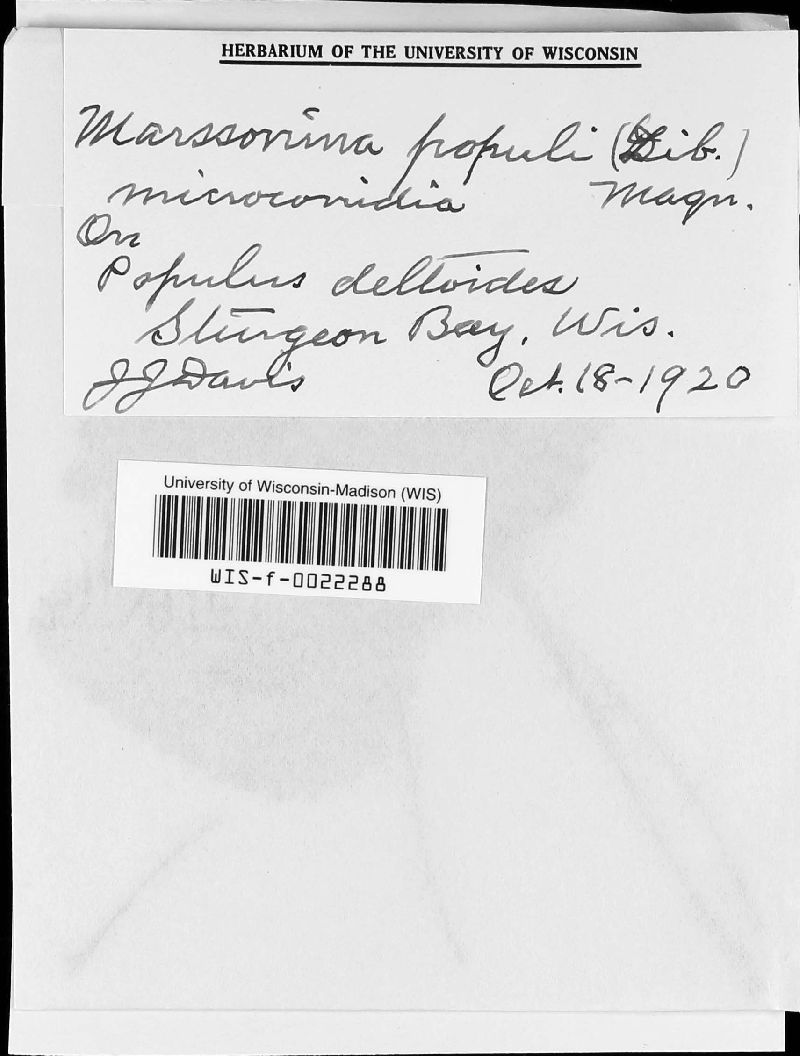 HERBARIUM OF THE UNIVERSITY OF WISCONSIN
Marssonina populi (Lib.)
microconidia Magn.
On
Populus deltoides
Sturgeon Bay, Wis.
JJ Davis Oct. 18-1920
University of Wisconsin-Madison (WIS)
WIS-f-0022288